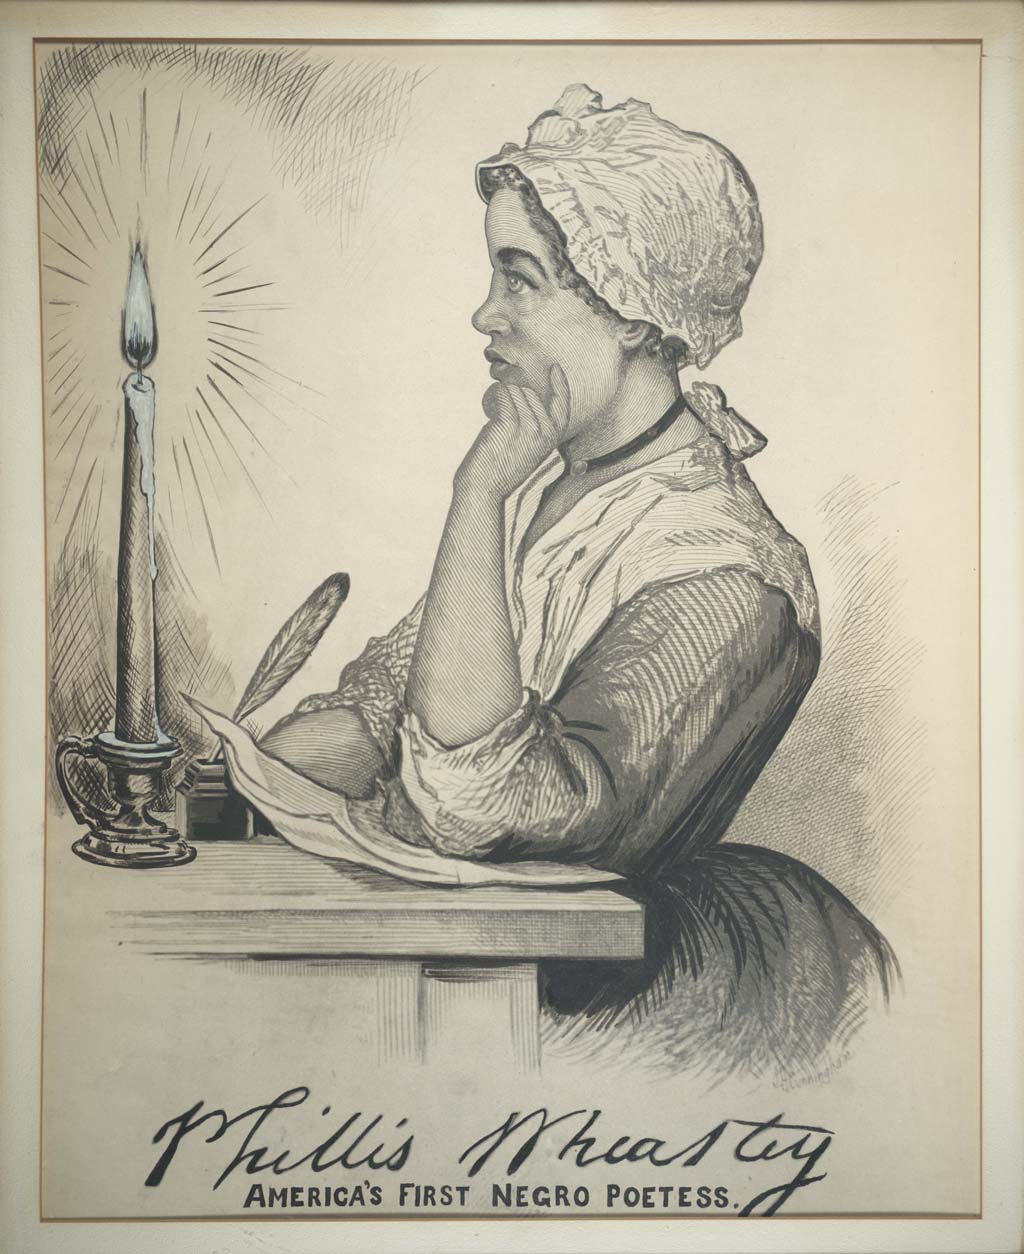 Cunningham
Phillis Wheatley
AMERICA'S FIRST NEGRO POETESS.